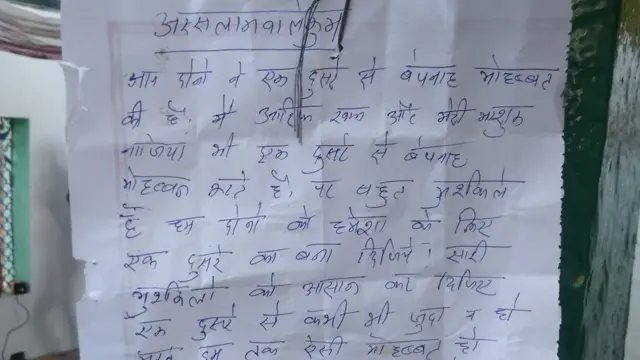 अस्सलामवालेकुम
आप दोनो ने एक दुसरे से बेपनाह मोहब्बत
की है। मे आशिक खान और मेरी माशुक
नाजिया भी एक दुसरे से बेपनाह
मोहब्बत करते है। पर बहुत मुश्किले
है हम दोनो को हमेशा के लिए
एक दुसरे का बना दिजिये। सारी
मुश्किलो को आसान कर दिजिए
एक दुसरे से कभी भी जुदा न हो
दम तक ऐसी मोहब्बत हो